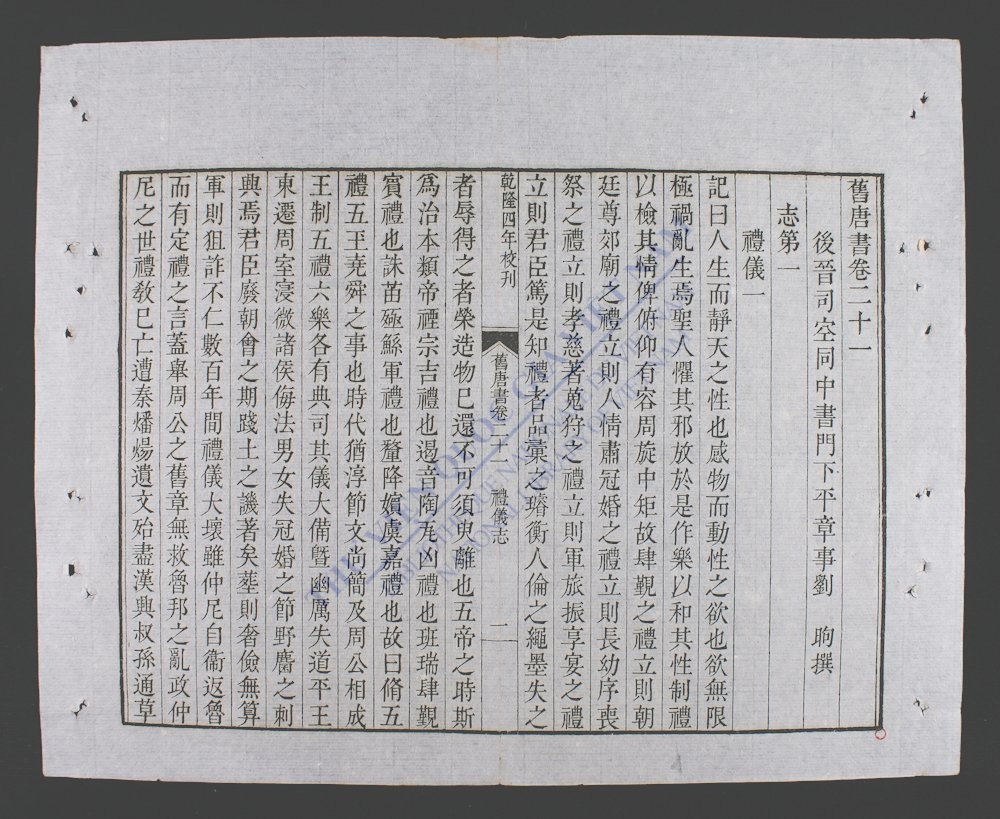 舊唐書卷二十一
後晉司空同中書門下平章事劉　昫撰
志第一
禮儀一
記曰人生而靜天之性也感物而動性之欲也欲無限
極禍亂生焉聖人懼其邪放於是作樂以和其性制禮
以檢其情俾俯仰有容周旋中矩故肆覲之禮立則朝
廷尊郊廟之禮立則人情肅冠婚之禮立則長幼序喪
祭之禮立則孝慈著蒐狩之禮立則軍旅振享宴之禮
立則君臣篤是知禮者品彙之璿衡人倫之繩墨失之
乾隆四年校刊
舊唐書卷二十一　禮儀志　一
者辱得之者榮造物已還不可須臾離也五帝之時斯
爲治本類帝禋宗吉禮也遏音陶瓦凶禮也班瑞肆覲
賓禮也誅苗殛鯀軍禮也釐降嬪虞嘉禮也故曰脩五
禮五玉堯舜之事也時代猶淳節文尚簡及周公相成
王制五禮六樂各有典司其儀大備曁幽厲失道平王
東遷周室寖微諸侯侮法男女失冠婚之節野麕之刺
興焉君臣廢朝會之期踐土之譏著矣葬則奢儉無算
軍則狙詐不仁數百年間禮儀大壞雖仲尼自衞返魯
而有定禮之言蓋舉周公之舊章無救魯邦之亂政仲
尼之世禮敎已亡遭秦燔煬遺文殆盡漢興叔孫通草
THƯ VIỆN QUỐC GIA VIỆT NAM
BIBLIOTHEQUE NATIONALE DU VIETNAM
NATIONAL LIBRARY OF VIETNAM